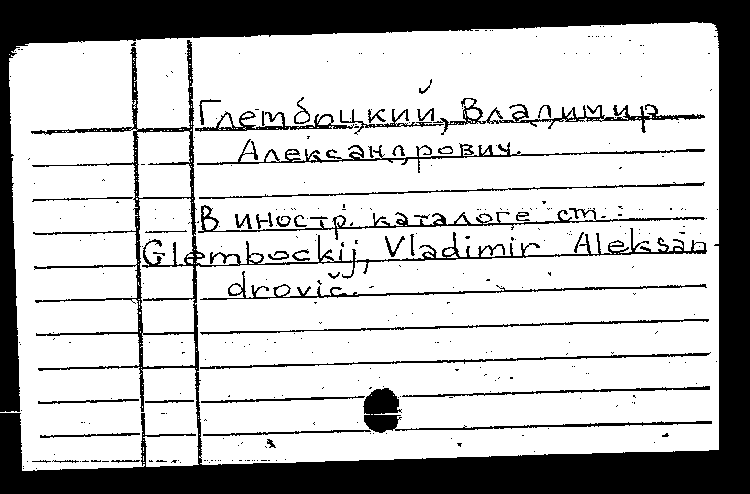 Глембоцкий, Владимир
Александрович.
В иностр. каталоге см.:
Glembockij, Vladimir Aleksan-
drovič.